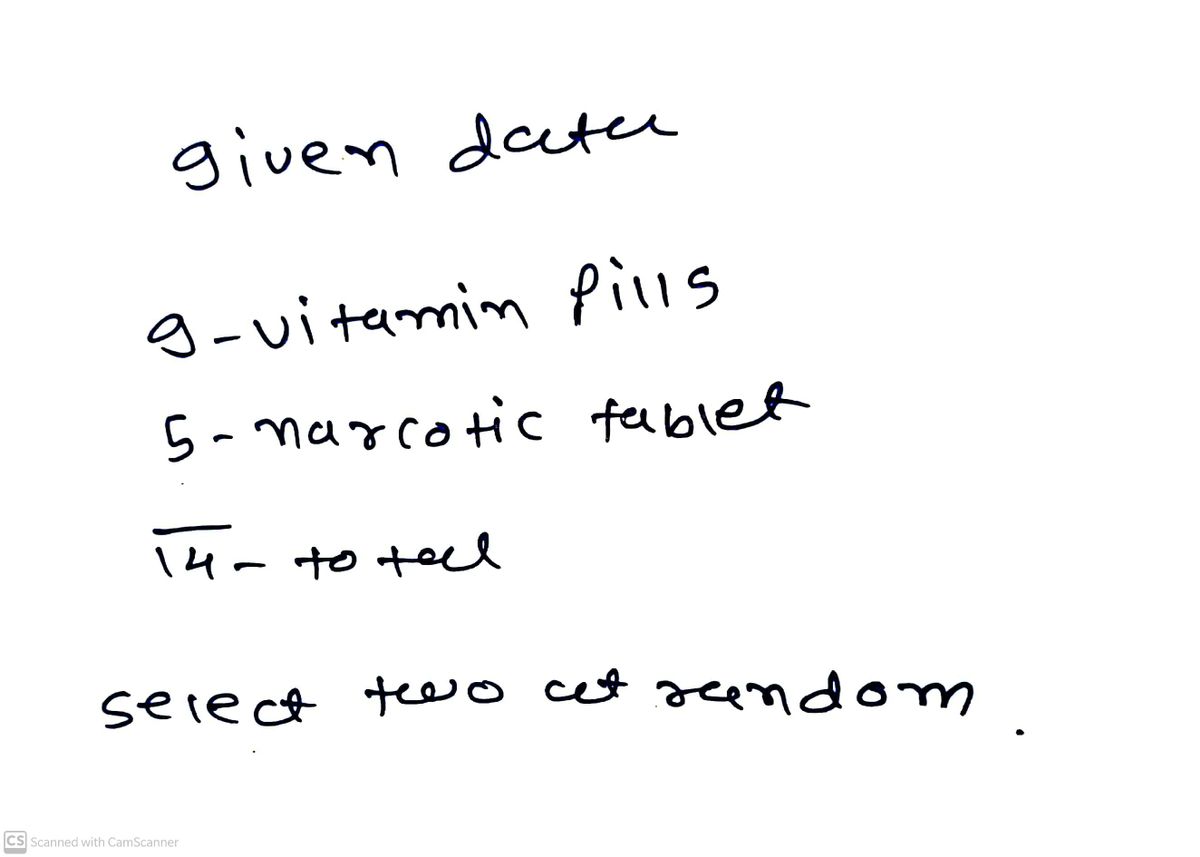 given data
9-vitamin pills
5-narcotic tablet
14- total
select two at random.
CS Scanned with CamScanner